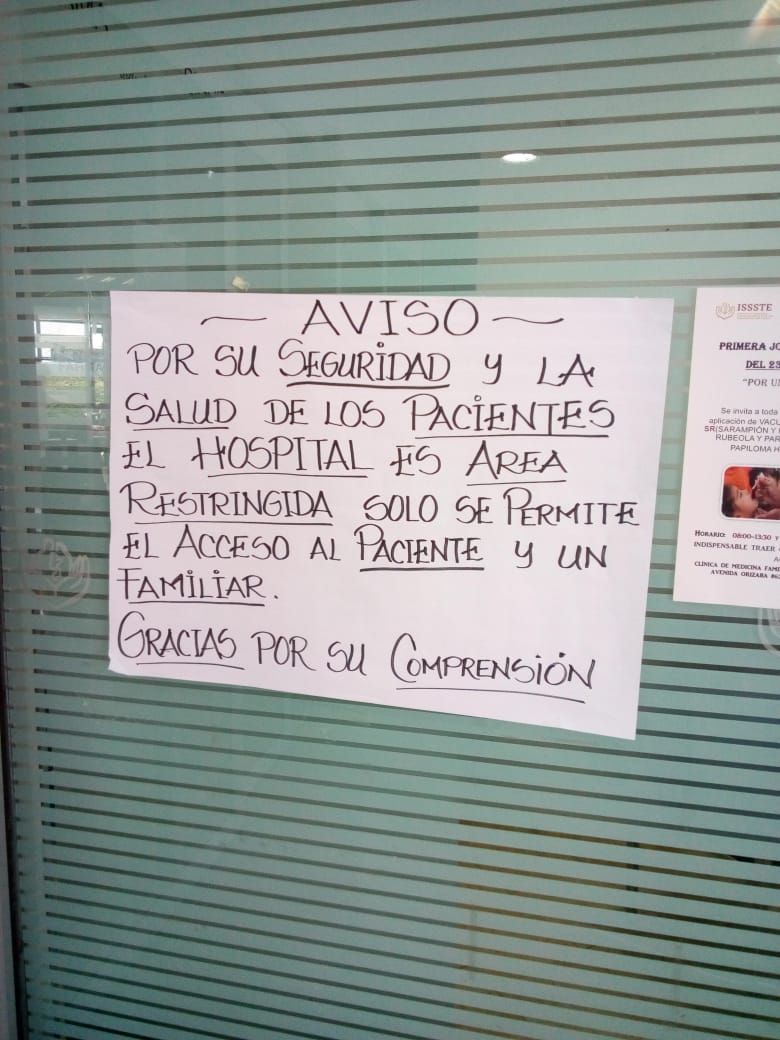 ~ AVISO ~
POR SU SEGURIDAD Y LA
SALUD DE LOS PACIENTES
EL HOSPITAL ES AREA
RESTRINGIDA SOLO SE PERMITE
EL ACCESO AL PACIENTE Y UN
FAMILIAR.
GRACIAS POR SU COMPRENSIÓN
ISSSTE
PRIMERA JO
DEL 23
"POR UN
Se invita a toda
aplicación de VACU
SR(SARAMPIÓN Y
RUBEOLA Y PAR
PAPILOMA H
HORARIO: 08:00-13:30 Y
INDISPENSABLE TRAER
CLÍNICA DE MEDICINA FAMI
AVENIDA ORIZABA #6